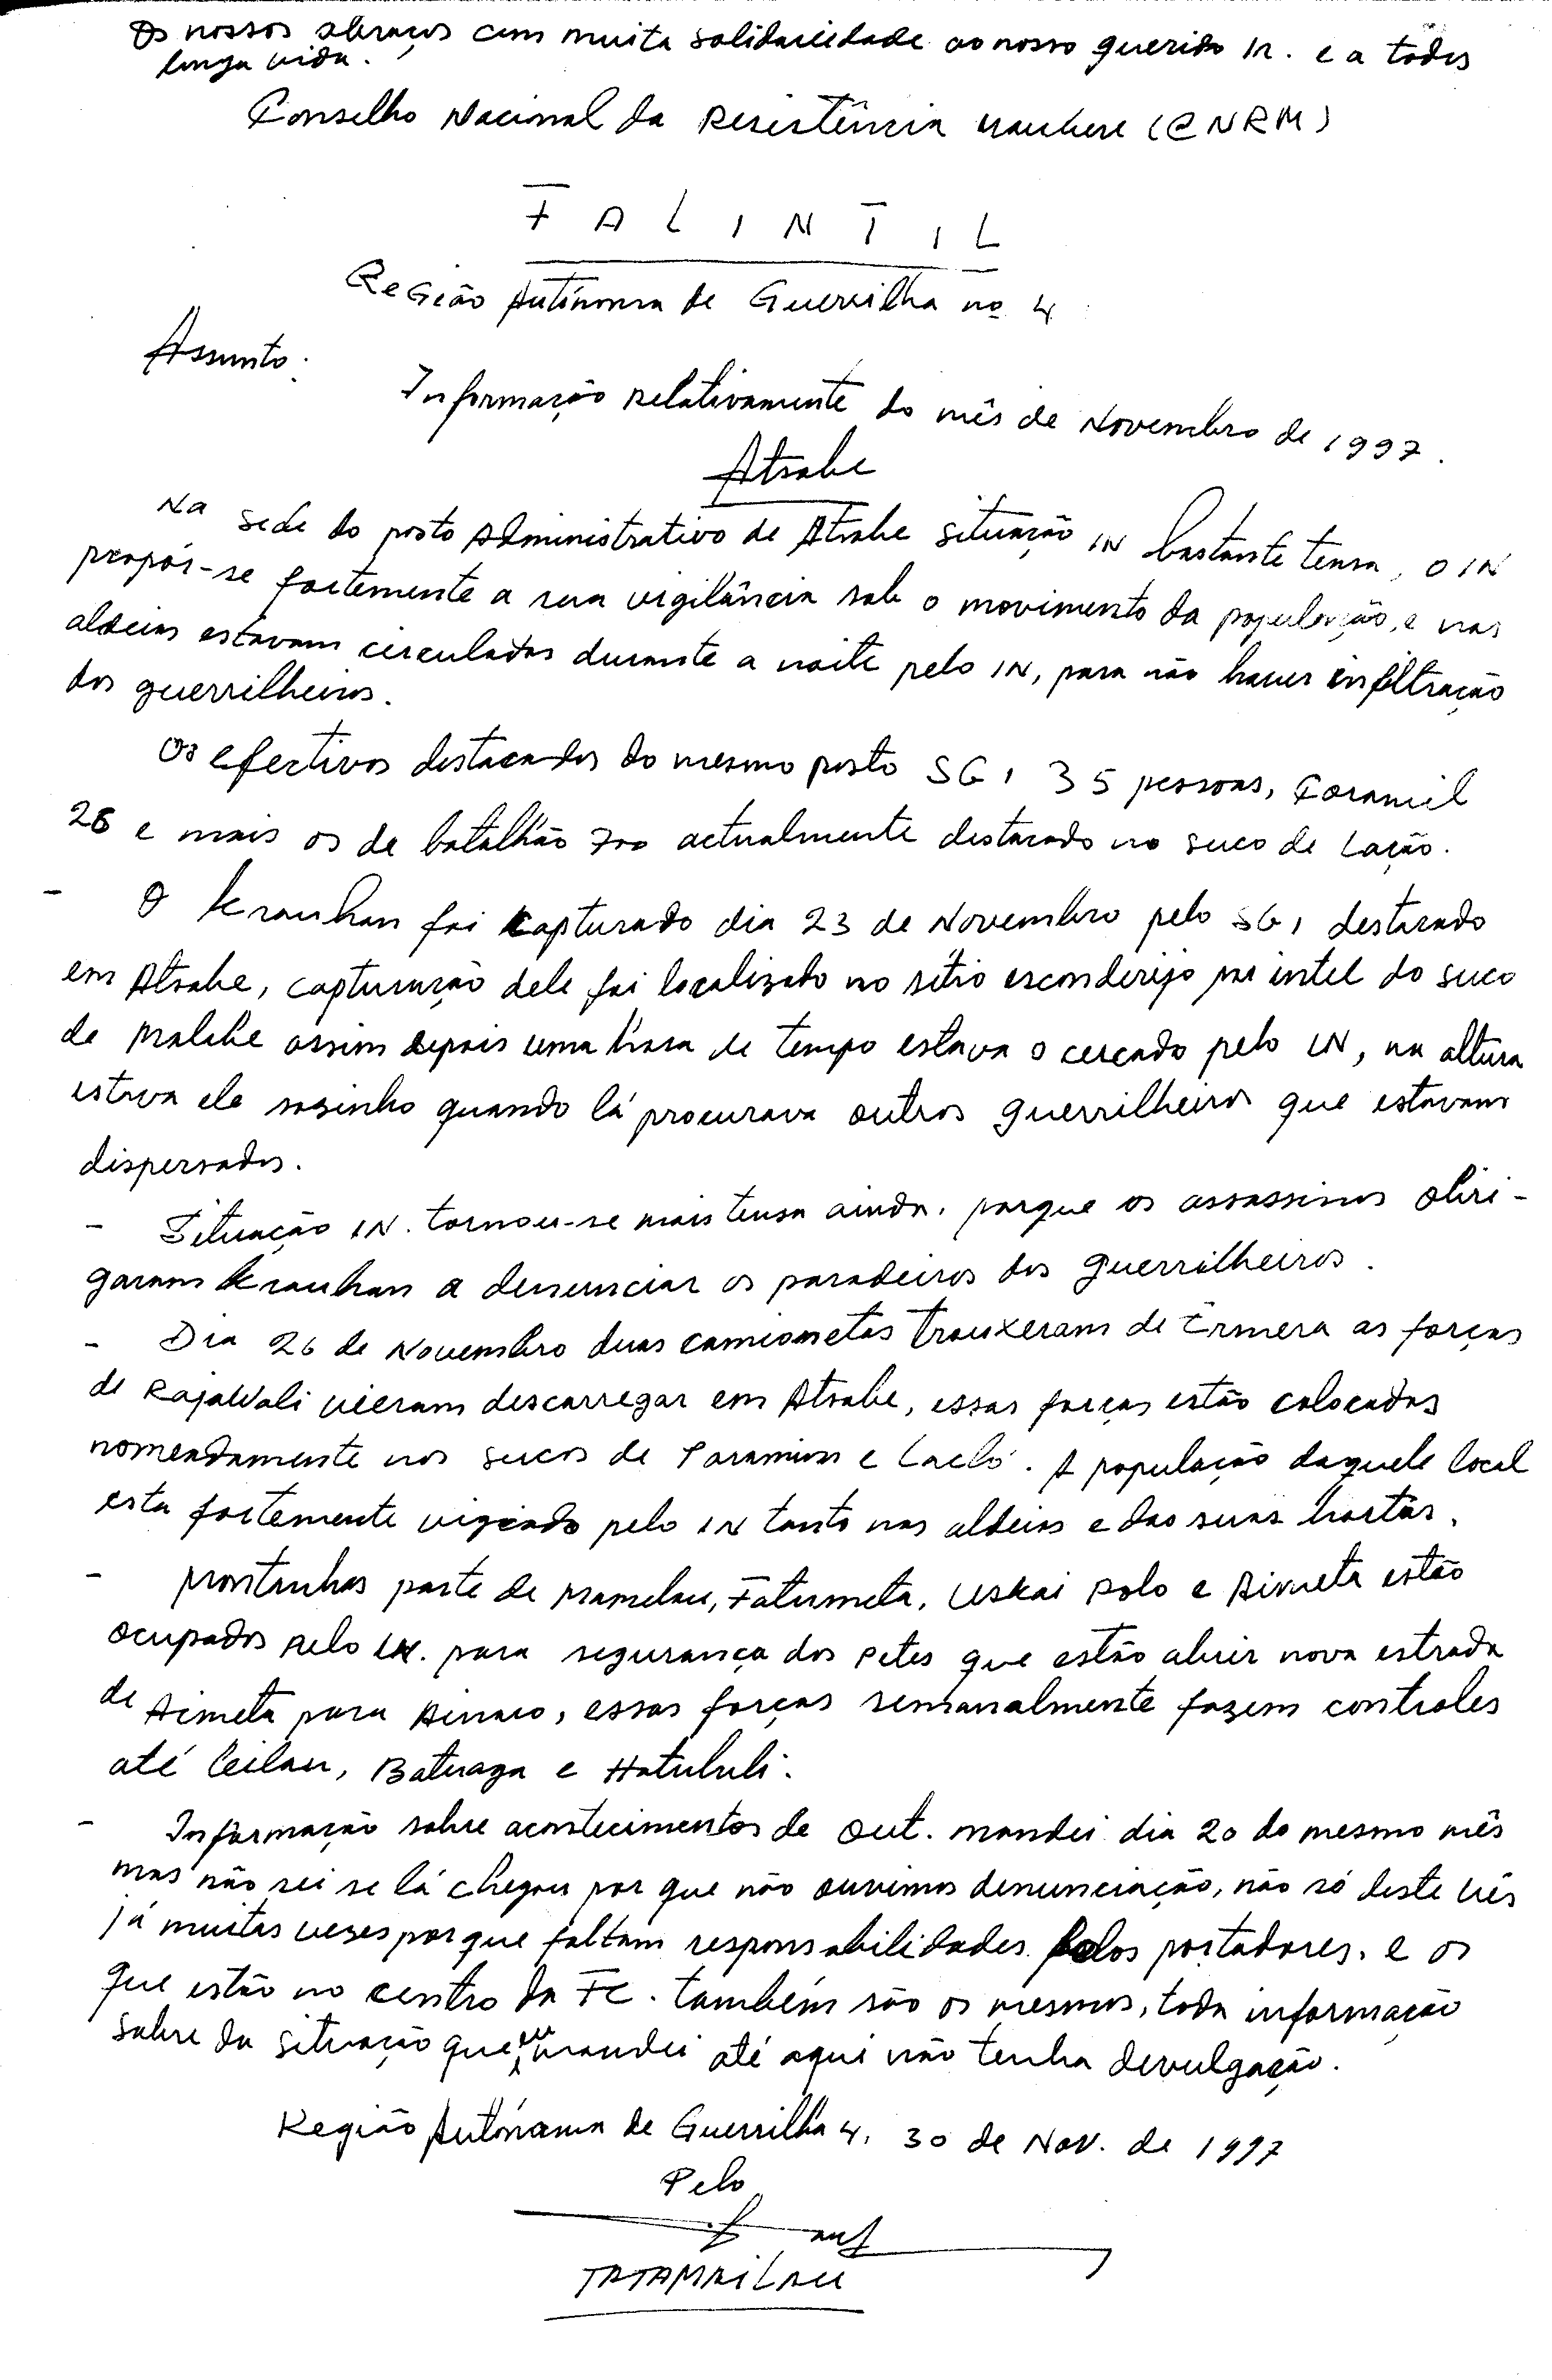 Os nossos abraços com muita solidariedade ao nosso querido Ir. e a todos
longa vida.
Conselho Nacional da Resistência Maubere (CNRM)
FALINTIL
Região Autónoma de Guerrilha nº 4
Assunto:
Informação relativamente do mês de Novembro de 1997.
Atsabe
Na sede do posto Administrativo de Atsabe situação IN bastante tensa, o IN
propôs-se fortemente a sua vigilância sob o movimento da população, e nas
aldeias estavam circulados durante a noite pelo IN, para não haver infiltração
dos guerrilheiros.
Os efectivos destacados do mesmo posto SGI 35 pessoas, Coramil
28 e mais os de batalhão 700 actualmente destacado no suco de Lação.
- O Kraukan foi capturado dia 23 de Novembro pelo SGI destacado
em Atsabe, capturação dele foi localizado no sítio esconderijo por intel do suco
de Malabe assim depois uma hora de tempo estava o cercado pelo IN, na altura
estava ele sozinho quando lá procurava outros guerrilheiros que estavam
dispersados.
- Situação IN. tornou-se mais tensa ainda, porque os assassinos obri-
garam Kraukan a denunciar os paradeiros dos guerrilheiros.
- Dia 26 de Novembro duas camionetas trouxeram de Ermera as forças
de Rajawali vieram descarregar em Atsabe, essas forças estão colocadas
nomeadamente nos sucos de Paramin e Laeló. A população daquele local
esta fortemente vigiado pelo IN tanto nas aldeias e das suas hortas.
- Montanhas parte de Ramelau, Faturmeta, Uskai Rolo e Airmeta estão
ocupados pelo IN. para segurança dos Petes que estão abrir nova estrada
de Aimeta para Ainaro, essas forças semanalmente fazem controles
até Leilau, Baturaga e Hatubuli.
- Informação sobre acontecimentos de Out. mandei dia 20 do mesmo mês
mas não sei se lá chegou por que não ouvimos denunciação, não só deste vês
já muitas vezes porque faltam responsabilidades pelos portadores. e os
que estão no centro da FC. também são os mesmos, toda informação
sobre da situação que eu mandei até aqui não tenha devulgação.
Região Autónoma de Guerrilha 4, 30 de Nov. de 1997
Pelo
TATAMAILAU